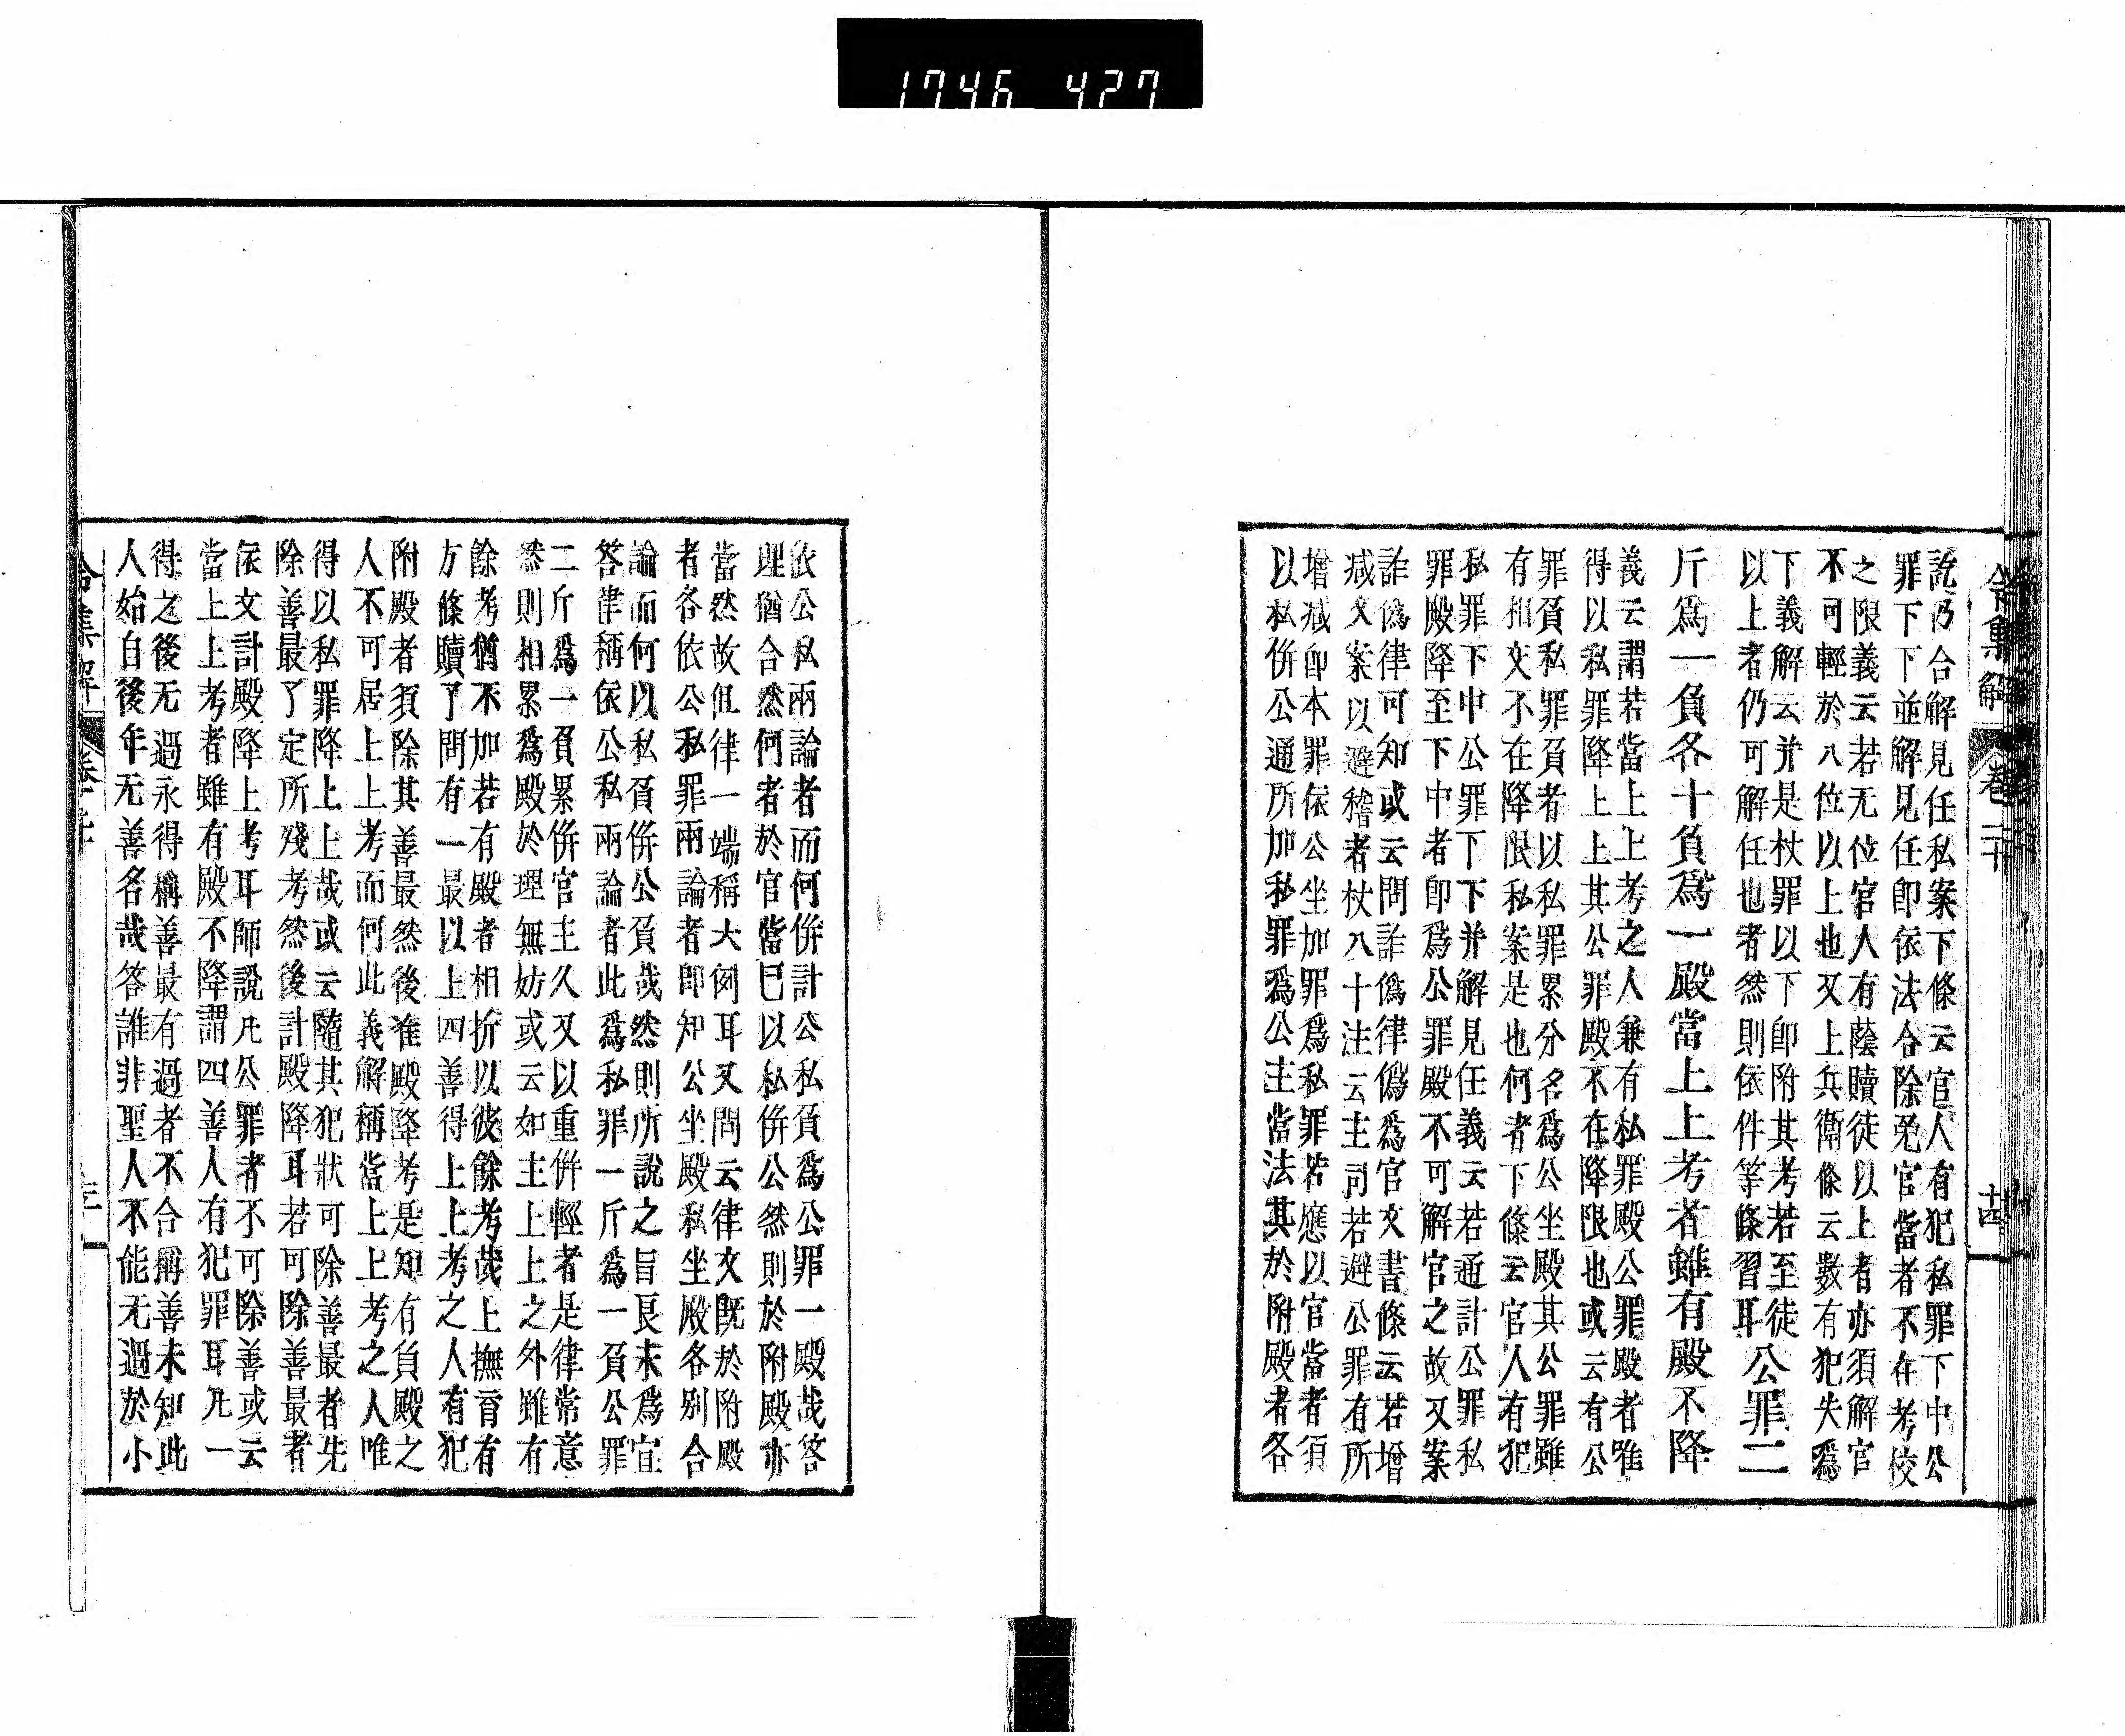 1746 427
令集解 卷二十 十四
說乃合解見任私案下條云官人有犯私罪下中公
罪下下並解見任卽依法合除免官當者不在考校
之限義云若无位官人有蔭贖徒以上者亦須解官
不可輕於八位以上也又上兵衛條云數有犯失爲
下義解云并是杖罪以下卽附其考若至徒
以上者仍可解任也者然則依件等條習耳公罪二
斤爲一負各十負爲一殿當上上考者雖有殿不降
義云謂若當上上考之人兼有私罪殿公罪殿者唯
得以私罪降上上其公罪殿不在降限也或云有公
罪負私罪負者以私罪累分名爲公坐殿其公罪雖
有相交不在降限私案是也何者下條云官人有犯
私罪下中公罪下下并解見任義云若通計公罪私
罪殿降至下中者卽爲公罪殿不可解官之故又案
詐僞律可知或云問詐僞律僞爲官文書條云若增
减文案以避稽者杖八十注云主司若避公罪有所
增减卽本罪依公坐加罪爲私罪若應以官當者須
以私併公通所加私罪爲公主當法其於附殿者各
依公私兩論者而何併計公私負爲公罪一殿哉答
理猶合然何者於官當已以私併公然則於附殿亦
當然故但律一端稱大例耳又問云律文既於附殿
者各依公私罪兩論者卽知公坐殿私坐殿各別合
論而何以私負併公負哉然則所說之旨長未爲宜
答律稱依公私兩論者此爲私罪一斤爲一負公罪
二斤爲一負累併官主久又以重併輕者是律常意
然則相累爲殿於理無妨或云如主上上之外雖有
餘考猶不加若有殿者相折以彼餘考哉上撫育有
方條贖了問有一最以上四善得上上考之人有犯
附殿者須除其善最然後准殿降考是知有負殿之
人不可居上上考而何此義解稱當上上考之人唯
得以私罪降上上哉或云隨其犯狀可除善最者先
除善最了定所殘考然後計殿降耳若可除善最者
依文計殿降上考耳師說凡公罪者不可除善或云
當上上考者雖有殿不降謂四善人有犯罪耳凡一
得之後无過永得稱善最有過者不合稱善未知此
人始自後年无善名哉答誰非聖人不能无過於小
令集解 卷二十